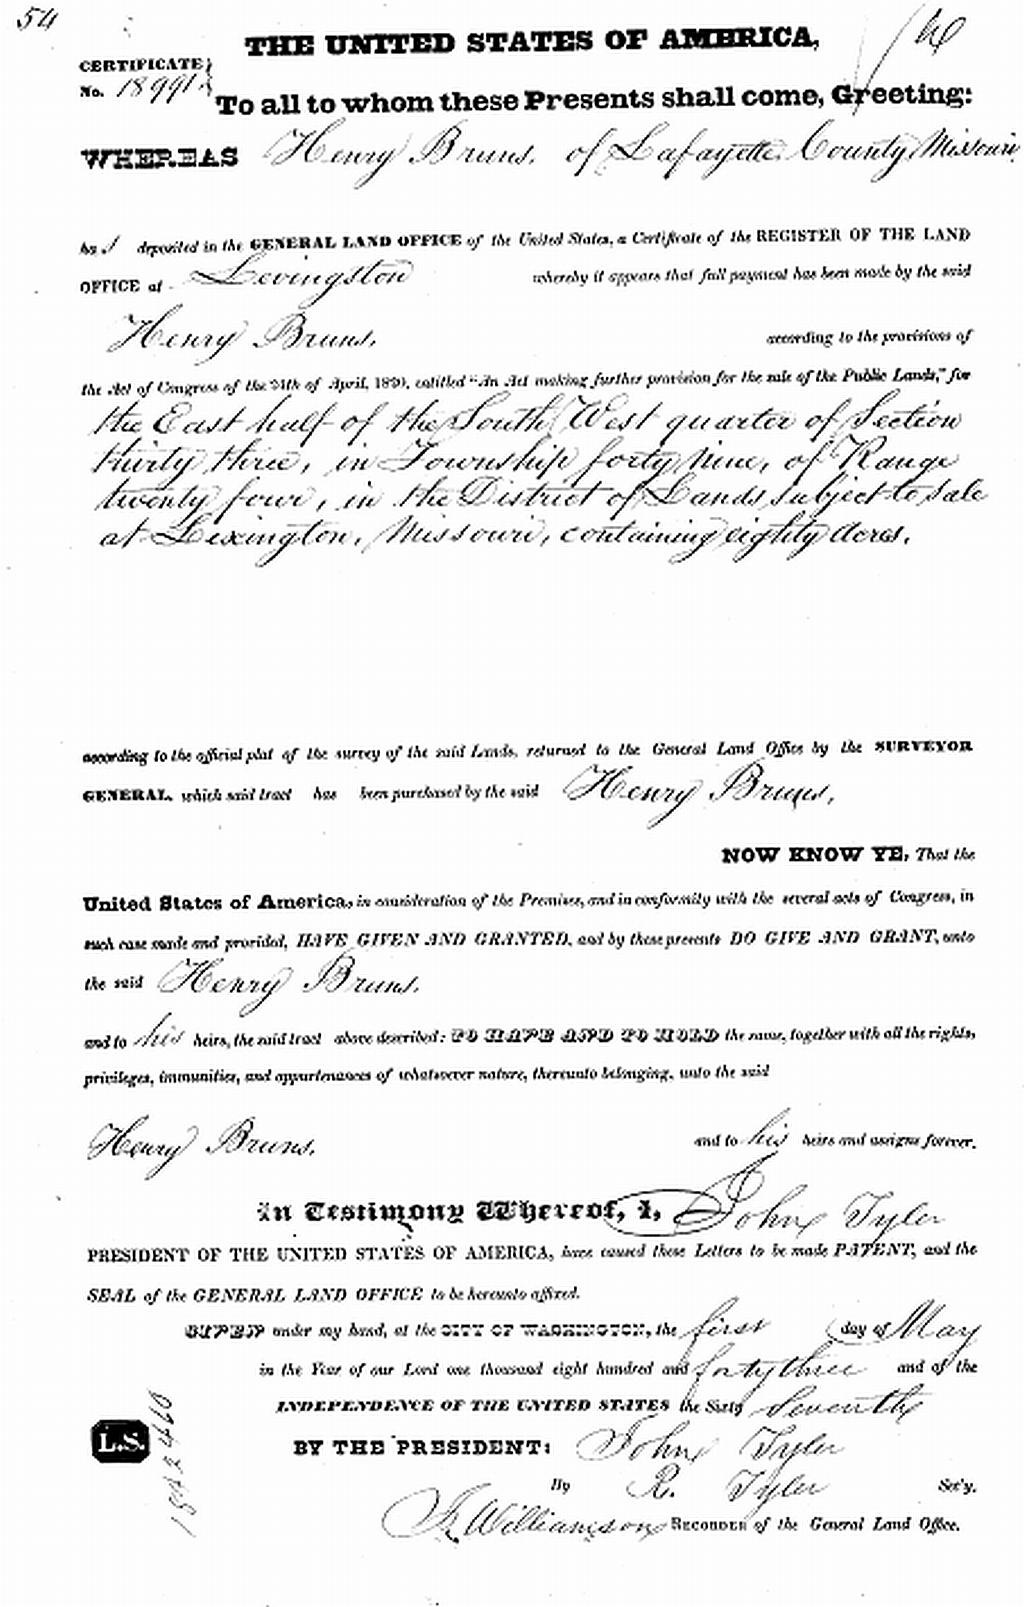 54
THE UNITED STATES OF AMERICA,
CERTIFICATE
No. 18991
To all to whom these Presents shall come, Greeting:
WHEREAS Henry Bruns, of Lafayette County, Missouri
has deposited in the GENERAL LAND OFFICE of the United States, a Certificate of the REGISTER OF THE LAND
OFFICE at Lexington whereby it appears that full payment has been made by the said
Henry Bruns, according to the provisions of
the Act of Congress of the 24th of April, 1820, entitled "An Act making further provision for the sale of the Public Lands," for
the East half of the South West quarter of Section
thirty three, in Township forty nine, of Range
twenty four, in the District of Lands subject to sale
at Lexington, Missouri, containing eighty acres,
according to the official plat of the survey of the said Lands, returned to the General Land Office by the SURVEYOR
GENERAL, which said tract has been purchased by the said Henry Bruns,
NOW KNOW YE, That the
United States of America, in consideration of the Premises, and in conformity with the several acts of Congress, in
such case made and provided, HAVE GIVEN AND GRANTED, and by these presents DO GIVE AND GRANT, unto
the said Henry Bruns,
and to his heirs, the said tract above described: TO HAVE AND TO HOLD the same, together with all the rights,
privileges, immunities, and appurtenances of whatsoever nature, thereunto belonging, unto the said
Henry Bruns, and to his heirs and assigns forever.
In Testimony Whereof, I, John Tyler
PRESIDENT OF THE UNITED STATES OF AMERICA, have caused these Letters to be made PATENT, and the
SEAL of the GENERAL LAND OFFICE to be hereunto affixed.
GIVEN under my hand, at the CITY OF WASHINGTON, the first day of May
in the Year of our Lord one thousand eight hundred and forty three and of the
INDEPENDENCE OF THE UNITED STATES the Sixty Seventh
L.S.
BY THE PRESIDENT: John Tyler
By R. Tyler Sec'y.
J. Williamson RECORDER of the General Land Office.